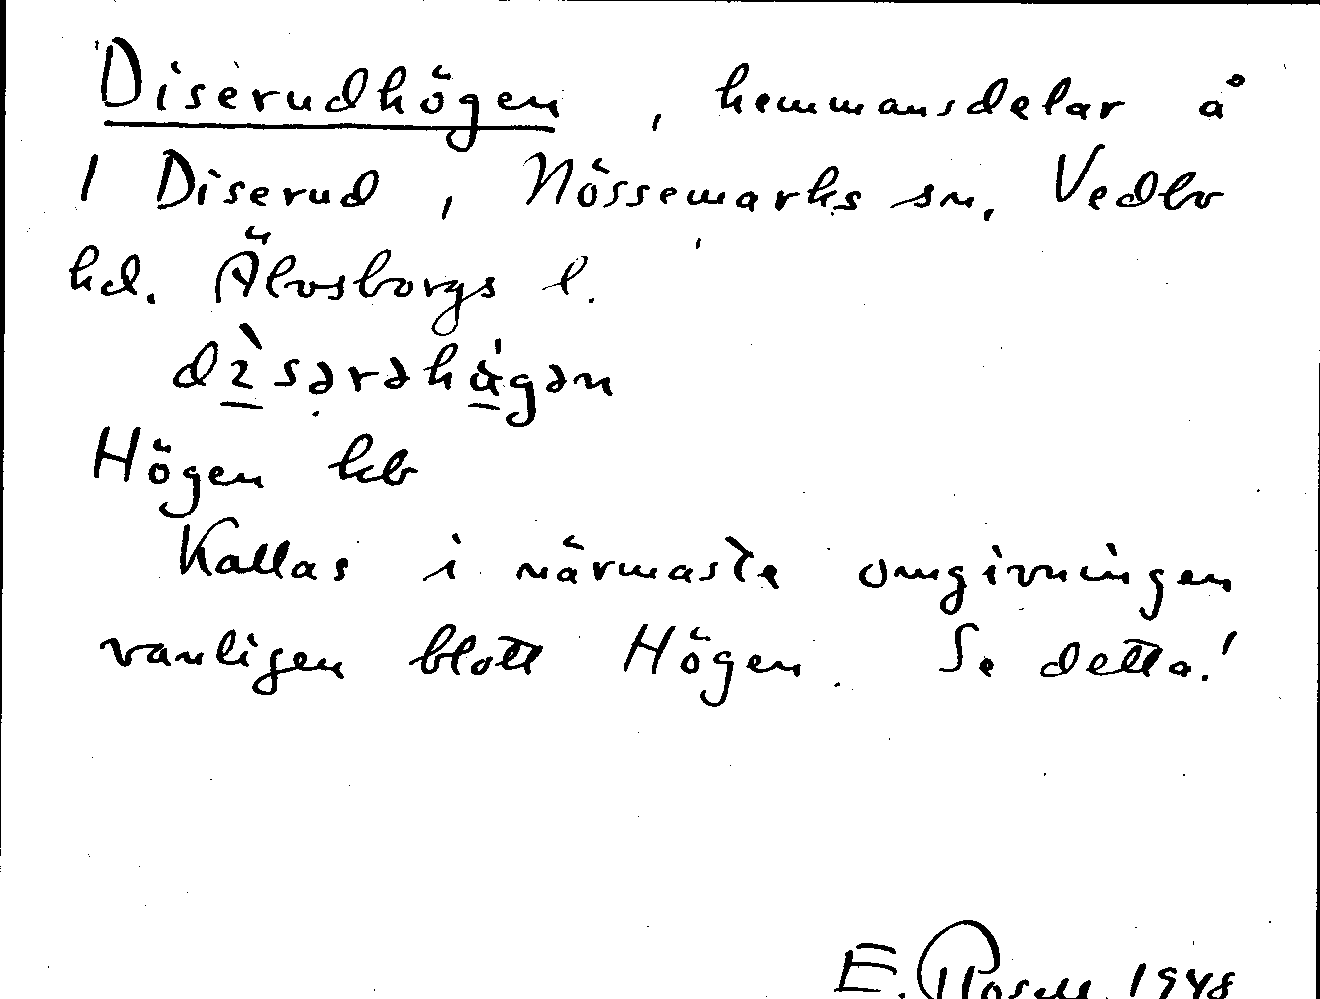 Diserudhögen, hemmansdelar å
1 Diserud, Nössemarks sn, Vedbo
hd. Älvsborgs l.
Högen kb
Kallas i närmaste omgivningen
vanligen blott Högen. Se detta!
E. Rosell 1948